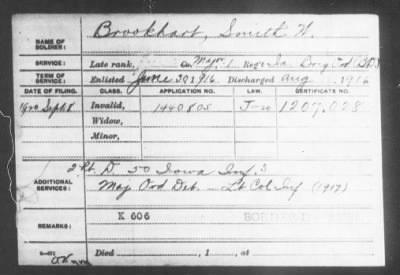 NAME OF SOLDIER: Brookhart, Smith W.
SERVICE: Late rank, Major Co. 1 Reg't Ia
TERM OF SERVICE: Enlisted June 1916 Discharged Aug 1916
DATE OF FILING. CLASS. APPLICATION NO. LAW. CERTIFICATE NO.
Sept 8 Invalid, 1440805 1207,028
Widow,
Minor,
ADDITIONAL SERVICES: D. 50 Iowa Inf.
Maj Ord Det. — Lt Col Inf (1917)
REMARKS: K 606
Died , 1 , at